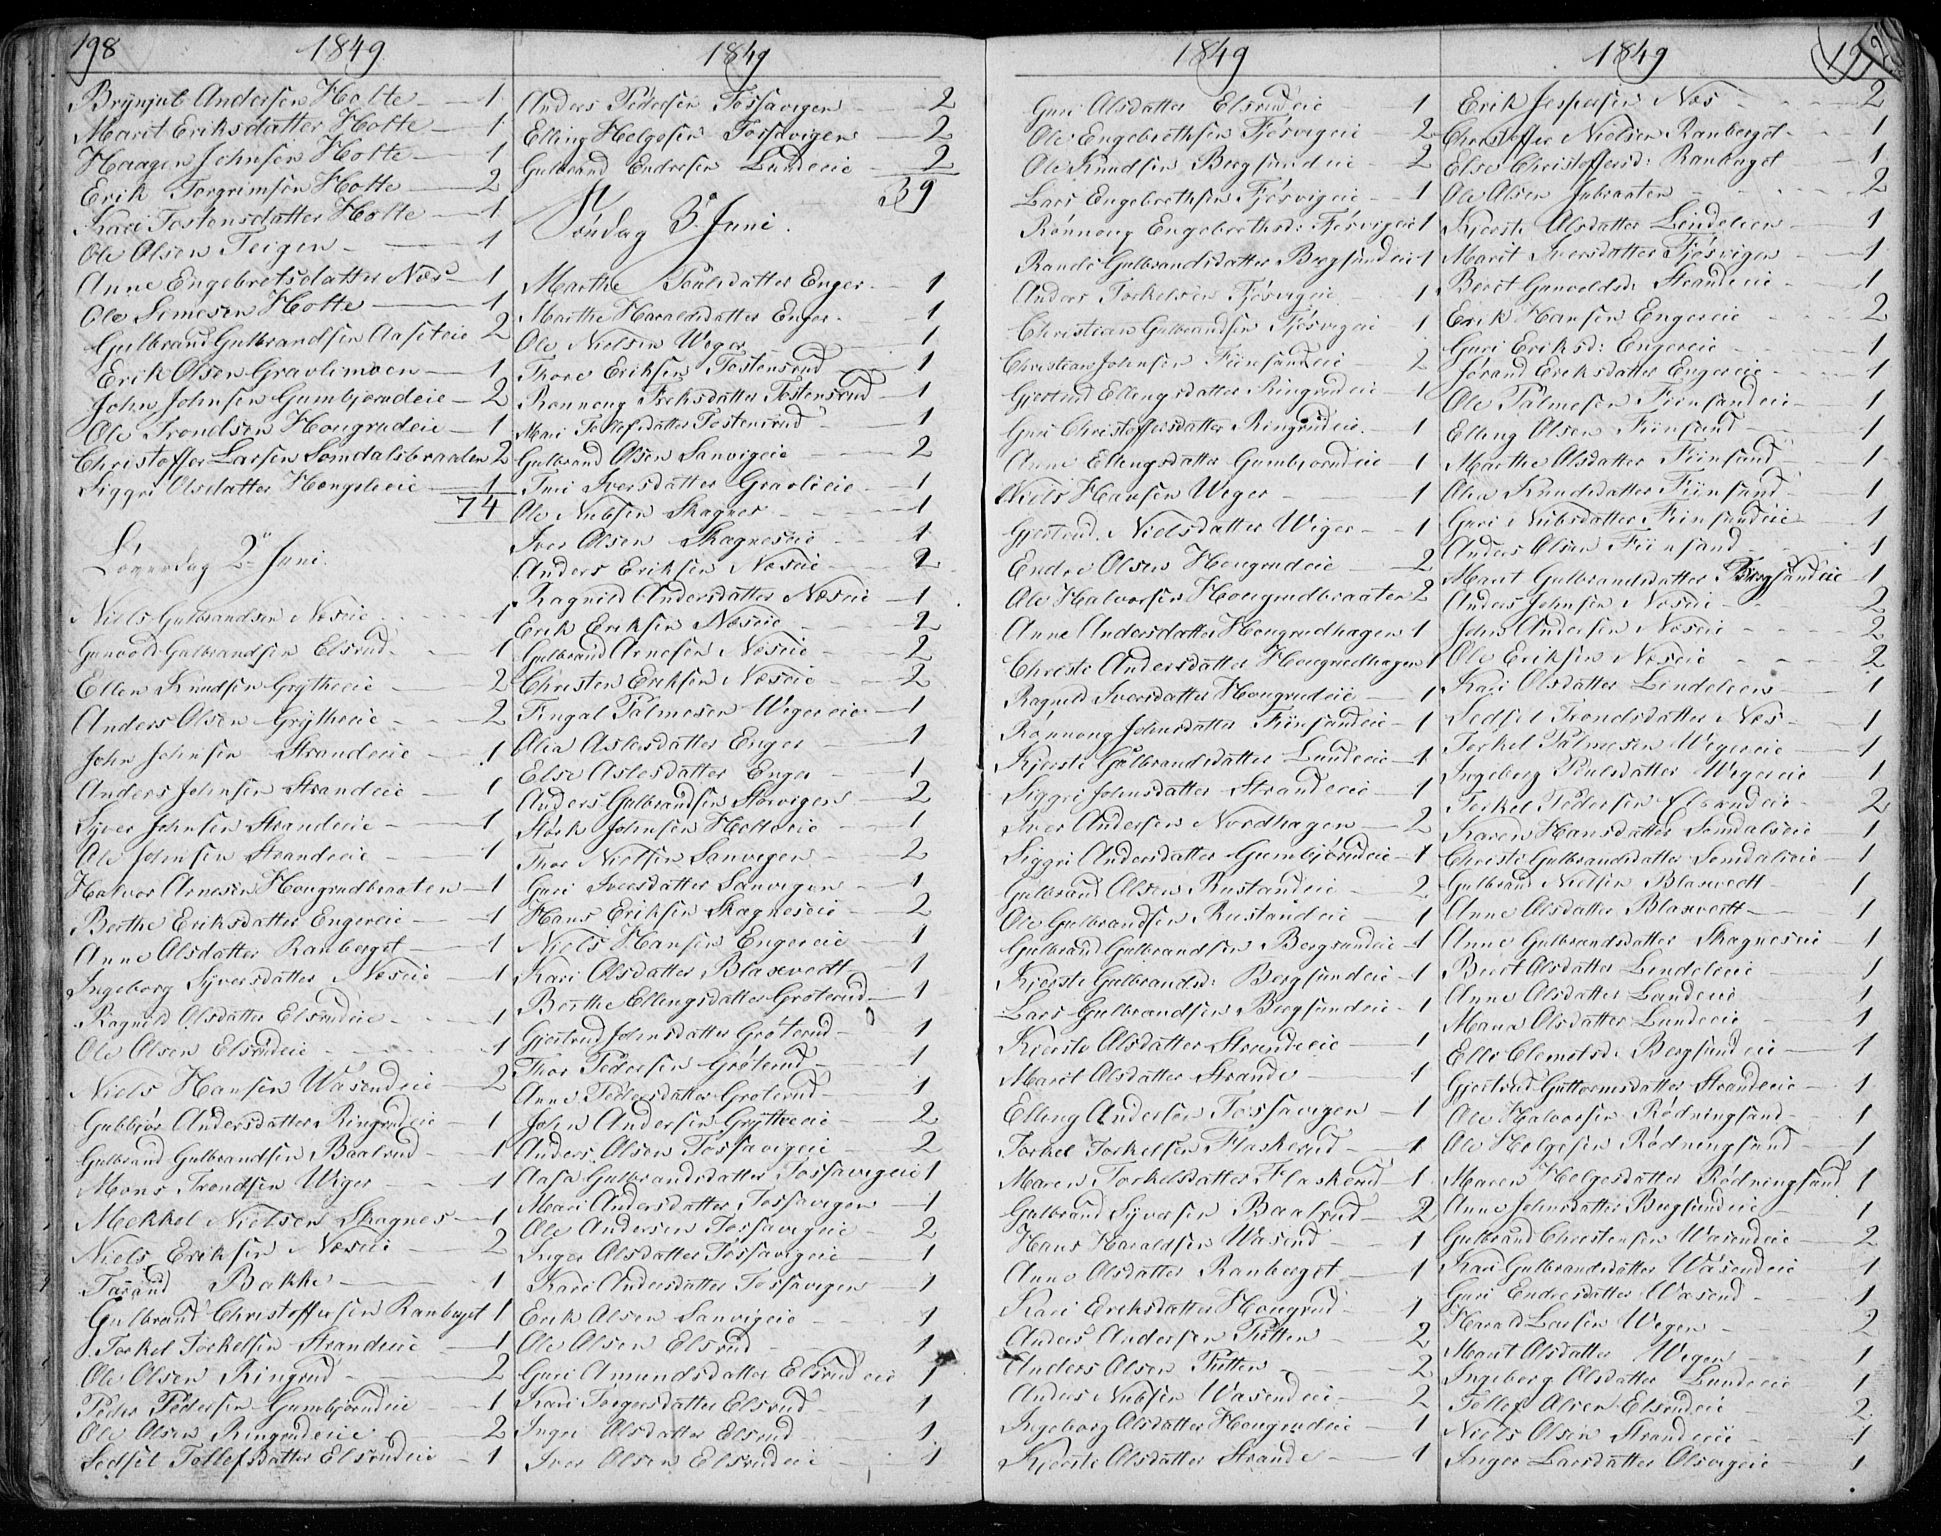 198 1849
Brynjul Andersen Holte 1
Marit Eriksdatter Holte 1
Haagen Johnsen Holte 1
Erik Torgrimsen Holte 2
Kari Tostensdatter Holte 1
Ole Olsen Teigen 1
Anne Engebretsdatter Næs 1
Ole Simesen Holte 1
Gulbrand Gulbrandsen 2
Erik Olsen Gravlimoen 1
John Johnsen Gumbjørndeie 2
Ole Trondsen Hougrudeie 1
Christoffer Larsen Somdalsbraaten 2
Siggri Olsdatter 1
74
Løverdag 2 Juni.
Niels Gulbrandsen Næseie 1
Gunvold Gulbrandsen Elsrud 1
Ellen Knudsen Grÿtheeie 2
Anders Olsen Grÿtheeie 2
John Johnsen Strandeeie 1
Anders Johnsen Strandeeie 1
Syver Johnsen Strandeeie 1
Ole Johnsen Strandeeie 1
Halvor Arnesen Hougrudbraaten 1
Berthe Eriksdatter Engereie 1
Anne Olsdatter Ranberget 1
Ingeborg Syversdatter Næseie 1
Ragnild Olsdatter Elsrudeie 1
Ole Olsen Elsrudeie 1
Niels Hansen Wasendeie 2
Gubbjør Andersdatter Ringrudeie 1
Gulbrand Gulbrandsen Baalrud 1
Mons Trondsen Wiger 1
Mekkel Nielsen Skagnes 1
Niels Eriksen Næseie 2
Tarand Bakke 1
Gulbrand Christoffersen Ranberget 1
Torkel Torkelsen Strandeeie 1
Ole Olsen Ringrud 2
Peder Pedersen Gumbjørndeie 1
Ole Olsen Ringrudeie 2
Sedsel Tollefsdatter Elsrudeie 1
1849
Anders Pedersen Fossavigen 2
Elling Helgesen Fossavigen 2
Gulbrand Endresen Lundeeie 2
39
Søndag 3 Juni.
Marthe Poulsdatter Enger 1
Marthe Haraldsdatter Enger 1
Ole Nielsen Weger 1
Thore Eriksen Tostensrud 1
Rønnoug Eriksdatter Tostensrud 1
Mari Tollefsdatter Tostensrud 1
Gulbrand Olsen Sanvigeie 2
Turi Iversdatter Gravlieie 1
Ole Nubsen Skagnes 1
Iver Olsen Skagneseie 1
Anders Eriksen Næseie 2
Ragnild Andersdatter Næseie 1
Erik Eriksen Næseie 2
Gulbrand Arnesen Næseie 2
Christen Eriksen Næseie 2
Fingal Palmesen Wegereie 1
Olia Aslesdatter Enger 1
Else Aslesdatter Enger 1
Anders Gulbrandsen Storvigen 2
Størk Johnsen Holteeie 1
Thor Nielsen Sanvigen 2
Guri Iversdatter Sanvigen 1
Hans Eriksen Skagneseie 2
Niels Hansen Engereie 1
Kari Olsdatter Blaxvedt 1
Berthe Ellengsdatter Grøterud 1
Gjertrud Johnsdatter Grøterud 1
Thor Pedersen Grøterud 1
Anne Pedersdatter Grøterud 1
John Andersen Grÿtheeie 2
Anders Olsen Fossavigeie 2
Aasa Gulbrandsdatter Fossavigeie 1
Mari Andersdatter Fossavigen 1
Ole Andersen Fossavigeie 2
Inger Olsdatter Fossavigeie 1
Kari Andersdatter Fossavigen 1
Erik Olsen Sanvigeie 1
Ole Olsen Elsrud 1
Guri Amundsdatter Elsrudeie 1
Kari Torgersdatter Elsrud 1
Ingri Olsdatter Elsrud 1
Iver Olsen Elsrudeie 1
1849
Guri Olsdatter Elsrudeie 1
Ole Engebrethsen Fjøsvigeie 2
Ole Knudsen Bergsundeie 2
Lars Engebrethsen Fjøsvigeie 1
Rønnoug Engebrethsd: Fjøsvigeie 1
Randi Gulbrandsdatter Bergsundeie 1
Anders Torkelsen Fjøsvigeie 1
Christian Gulbrandsen Fjøsvigeie 1
Christian Johnsen Fiinsandeie 2
Gjertrud Ellengsdatter Ringrudeie 1
Guri Christoffersdatter Ringrudeie 1
Anne Ellengsdatter Gumbjørndeie 1
Niels Hansen Weger 1
Gjertrud Nielsdatter Wiger 1
Endre Olsen Hougrudeie 2
Ole Halvorsen Hougrudbraaten 2
Anne Andersdatter Hougrudhagen 1
Christi Andersdatter Hougrudhagen 1
Ragnild Iversdatter Hougrudeie 1
Rønnoug Johnsdatter Fiinsandeie 1
Kjersti Gulbrandsdatter Lundeeie 1
Siggri Johnsdatter Strandeeie 1
Iver Andersen Nordhagen 2
Siggri Andersdatter Gumbjørndeie 1
Gulbrand Olsen Rustandeie 2
Ole Gulbrandsen Rustandeie 1
Gulbrand Gulbrandsen Bergsundeie 1
Kjersti Gulbrandsd: Bergsundeie 1
Lars Gulbrandsen Bergsundeie 1
Kjersti Olsdatter Strandeeie 1
Marit Olsdatter Strande 1
Elleng Andersen Fossavigen 1
Torkel Torkelsen Flaskerud 1
Maren Torkelsdatter Flaskerud 1
Gulbrand Syversen Baalrud 2
Hans Haraldsen Wasend 1
Anne Olsdatter Ranberget 1
Kari Eriksdatter Hougrud 1
Anders Andersen Putten 2
Anders Olsen Putten 2
Anders Nubsen Wasendeie 2
Ingeborg Olsdatter Hougrudeie 1
Kjersti Olsdatter Strande 1
1849
Erik Jespersen Næs 2
Christoffer Nielsen Ranberget 1
Else Christoffersd: Ranberget 1
Ole Olsen Julbraaten 2
Kjersti Olsdatter Lindelien 1
Marit Iversdatter Fjøsvigen 1
Berit Gunvoldsd: Strandeeie 1
Erik Hansen Engereie 2
Guri Eriksd: Engereie 1
Jørand Eriksdatter Engereie 1
Ole Palmesen Fiinsandeie 1
Elling Olsen Fiinsand 1
Marthe Olsdatter Fiinsand 1
Olea Knudsdatter Fiinsand 1
Guri Nubsdatter Fiinsandeie 1
Anders Olsen Fiinsand 1
Marit Gulbrandsdatter Bergsundeie 1
Anders Johnsen Næseie 2
John Andersen Næseie 2
Ole Eriksen Næseie 2
Kari Olsdatter Lindelien 1
Sedsel Trondsdatter Næs 1
Torkel Palmesen Wegereie 1
Ingeborg Poulsdatter Wegereie 1
Torkel Pedersen Elsrudeie 2
Karen Hansdatter Somdalseie 1
Christi Gulbrandsdatter Somdalseie 1
Gulbrand Nielsen Blaxvedt 1
Anne Olsdatter Blaxvedt 1
Anne Gulbrandsdatter Skagneseie 1
Berit Olsdatter Lindelieie 1
Anne Olsdatter Lundeeie 1
Mari Olsdatter Lundeeie 1
Elli Clemetsd: Bergsundeie 1
Gjertrud Guttormsdatter Strandeeie 1
Ole Halvorsen Rødningsand 1
Ole Helgesen Rødningsand 1
Maren Helgesdatter Rødningsand 1
Anne Johnsdatter Bergsundeie 1
Gulbrand Christensen Wasendeie 2
Kari Gulbrandsdatter Wasendeie 1
Guri Endresdatter Wasend 1
Harald Larsen Wegen 2
Marit Olsdatter Wegen 1
Ingeborg Olsdatter Lundeeie 1
Tollef Olsen Elsrudeie 2
Niels Olsen Strandeeie 1
Inger Larsdatter Olsvigeie 1